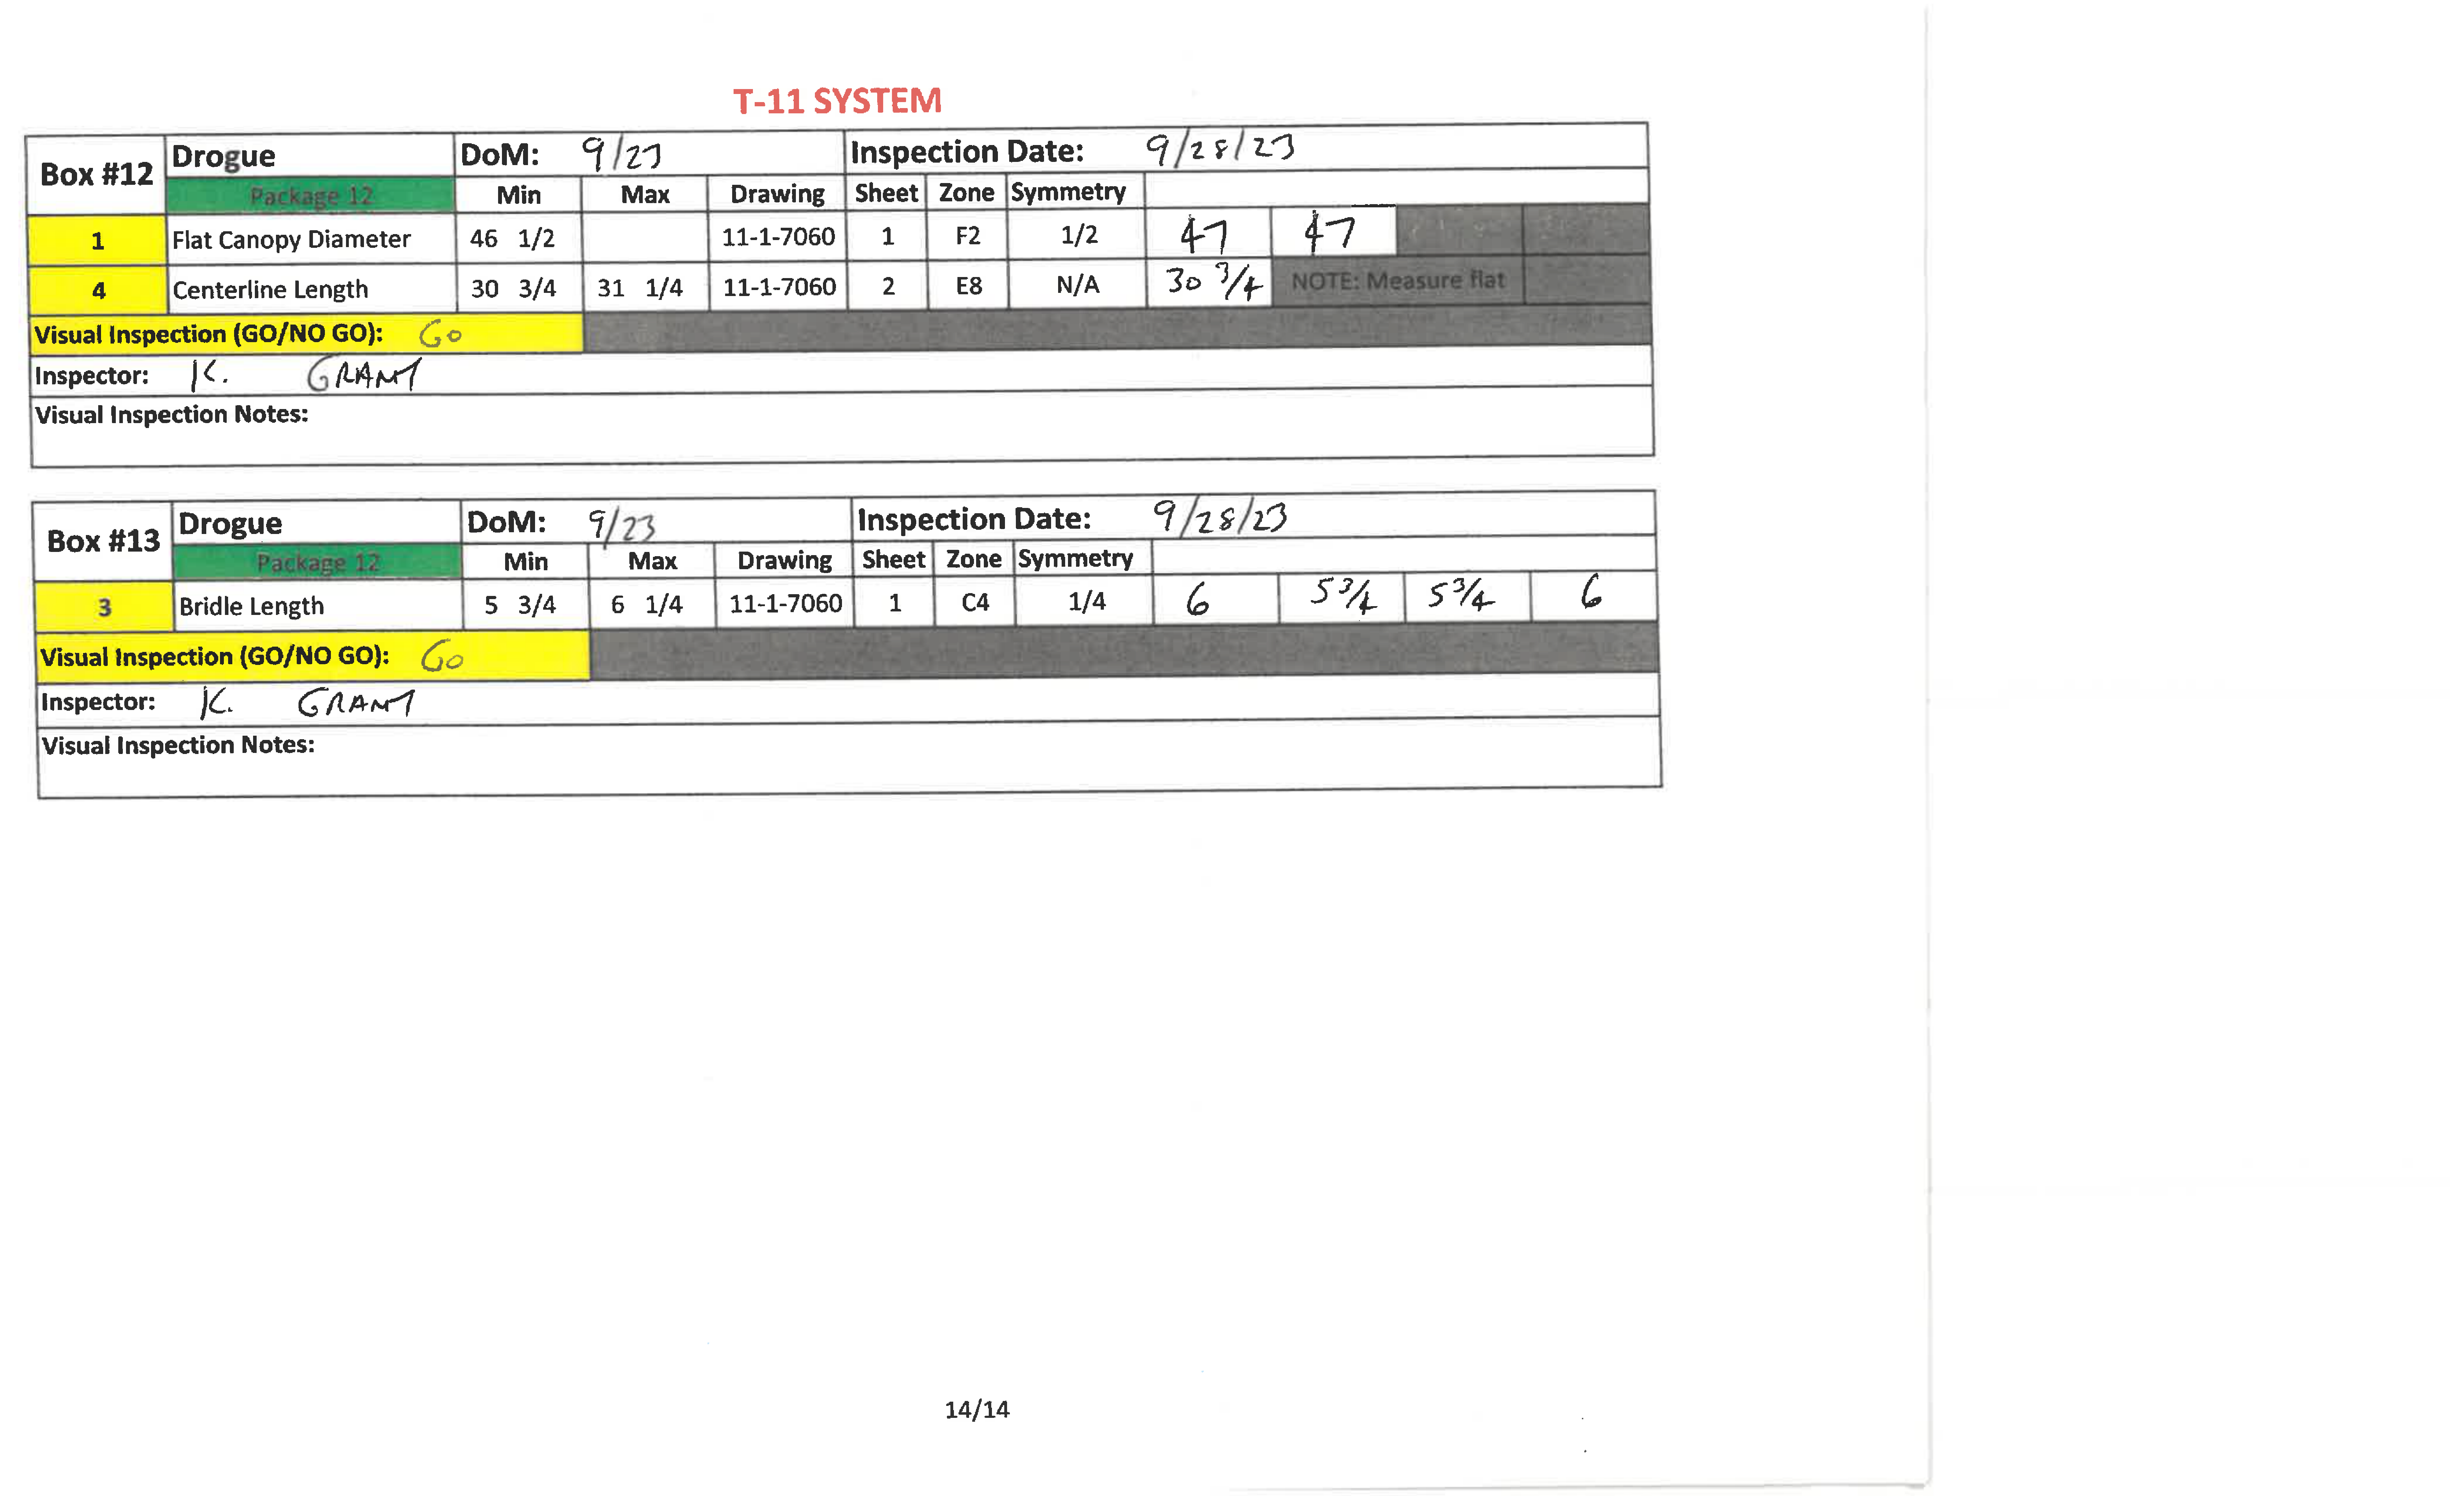 T-11 SYSTEM
Box #12 Drogue DoM: 9/23 Inspection Date: 9/28/23
Package 12 Min Max Drawing Sheet Zone Symmetry
1 Flat Canopy Diameter 46 1/2 11-1-7060 1 F2 1/2 47 47
4 Centerline Length 30 3/4 31 1/4 11-1-7060 2 E8 N/A 30 3/4 NOTE: Measure flat
Visual Inspection (GO/NO GO): Go
Inspector: K. GRANT
Visual Inspection Notes:
Box #13 Drogue DoM: 9/23 Inspection Date: 9/28/23
Package 12 Min Max Drawing Sheet Zone Symmetry
3 Bridle Length 5 3/4 6 1/4 11-1-7060 1 C4 1/4 6 5 3/4 5 3/4 6
Visual Inspection (GO/NO GO): Go
Inspector: K. GRANT
Visual Inspection Notes:
14/14